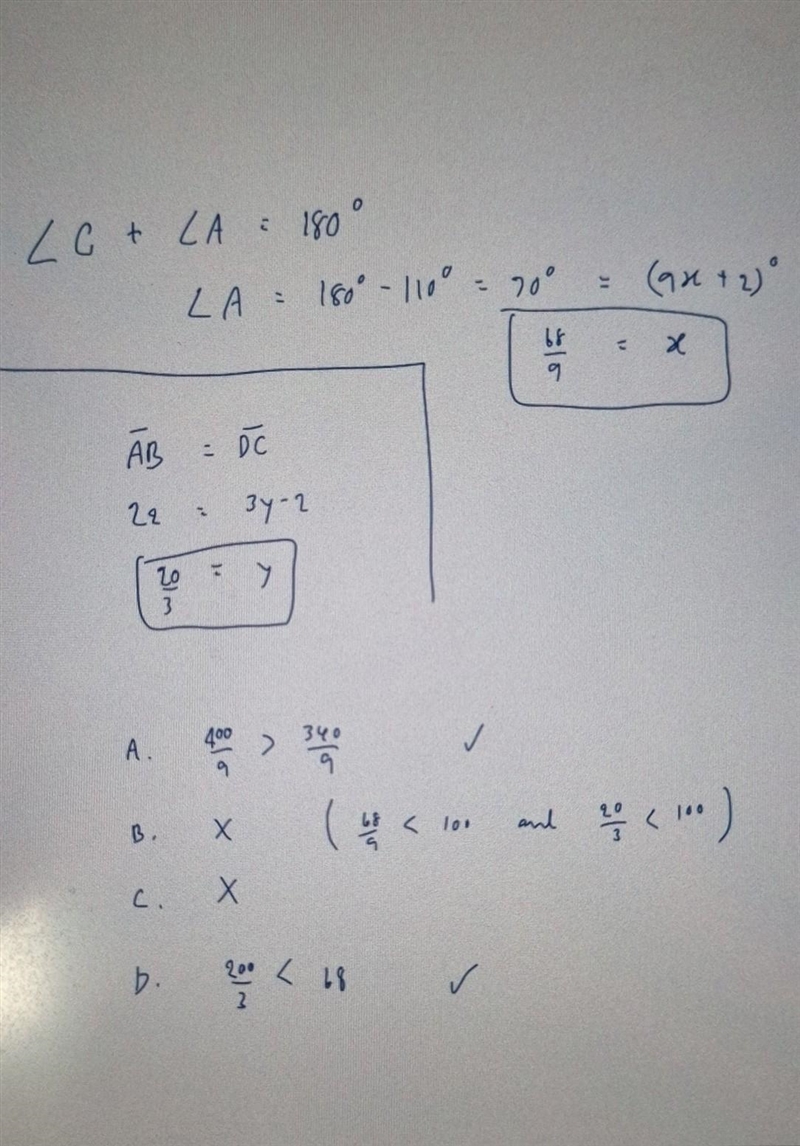 ∠C + ∠A = 180°
∠A = 180° - 110° = 70° = (9x + 2)°
68/9 = x
A̅B̅ = D̅C̅
22 = 3y-2
20/3 = y
A. 400/9 > 340/9 ✓
B. X ( 68/9 < 100 and 20/3 < 100 )
C. X
D. 200/3 < 68 ✓